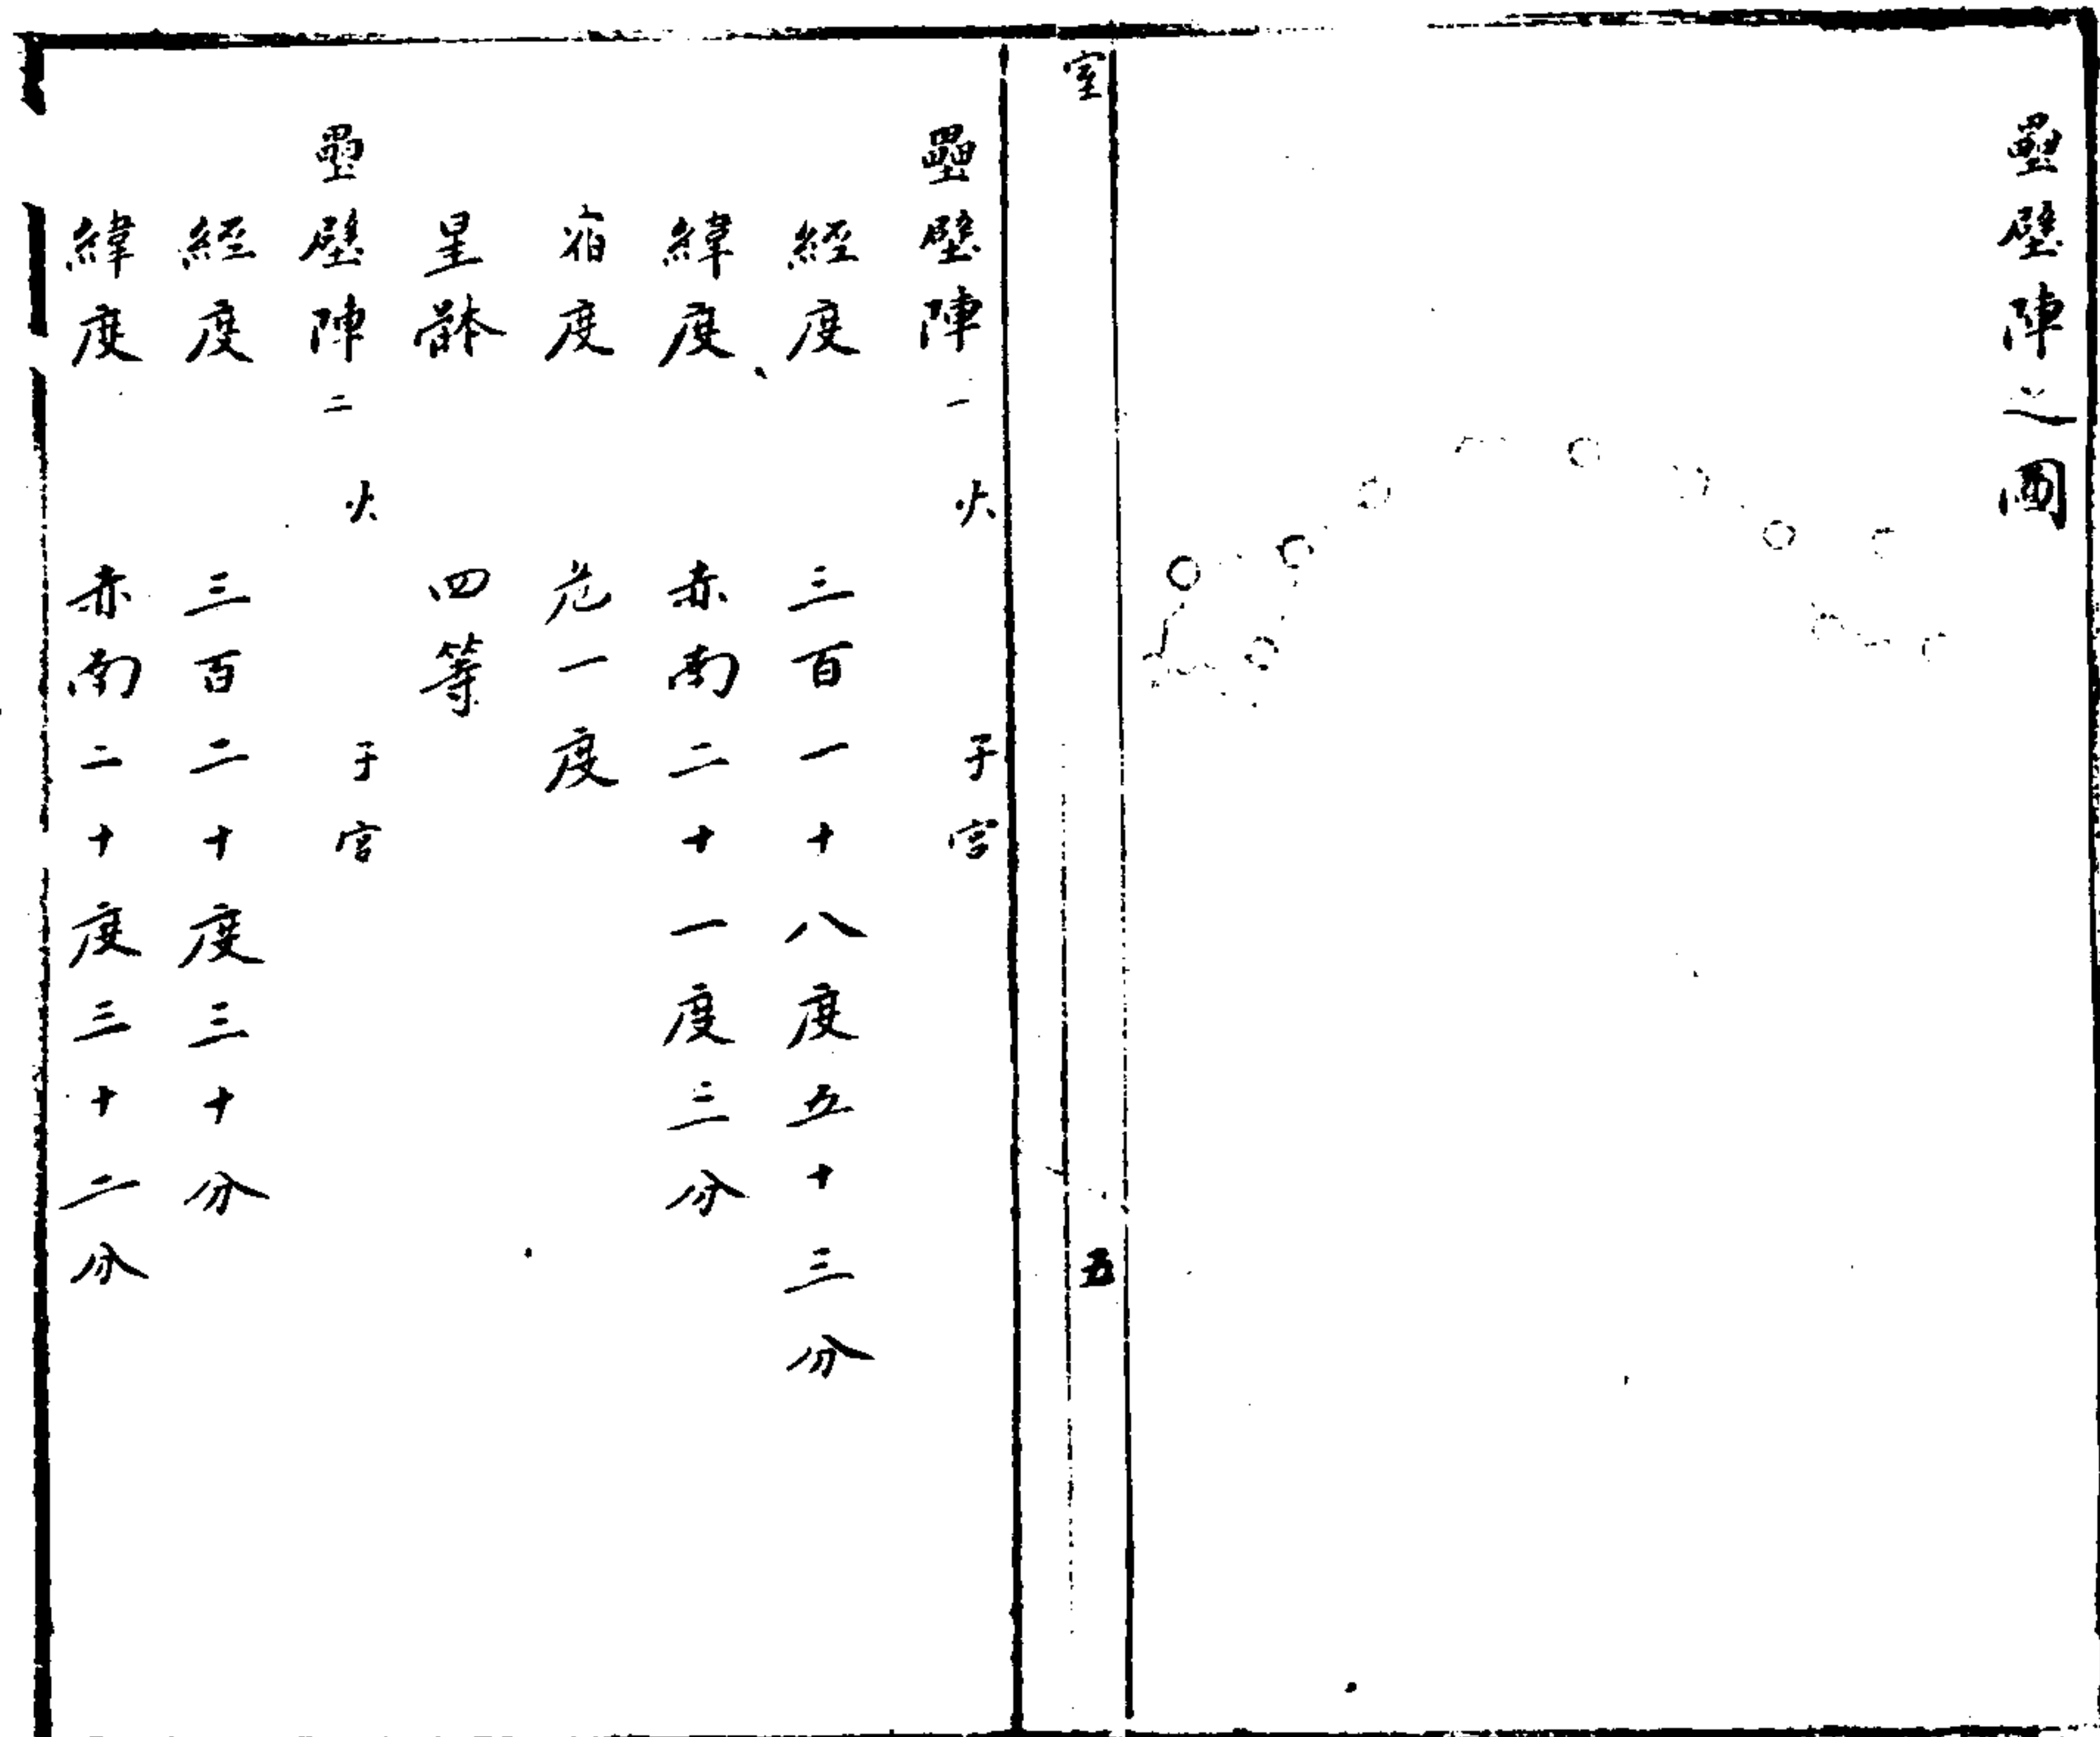 壘壁陣之圖
室
五
壘壁陣一 火 子宮
經度 三百一十八度五十三分
緯度 赤南二十一度三分
宿度 危一度
星體 四等
壘壁陣二 火 子宮
經度 三百二十度三十分
緯度 赤南二十度三十二分